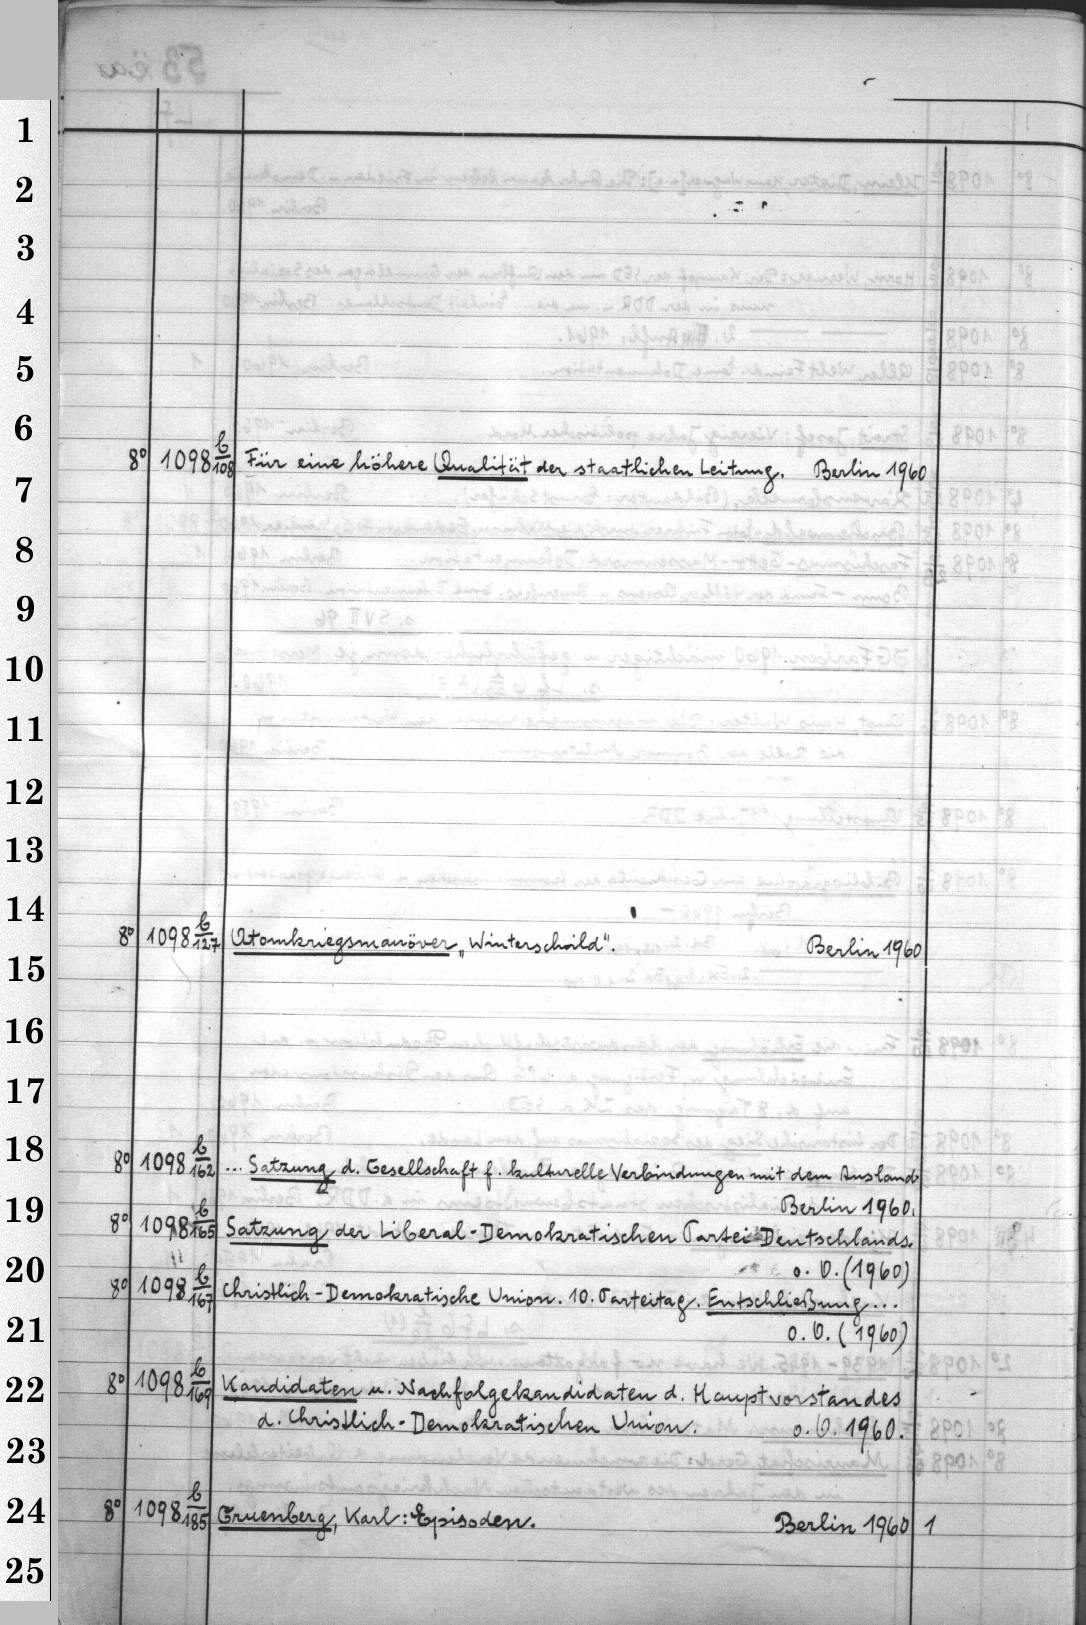 1
2
3
4
5
6
8° 1098 b/108 Für eine höhere Qualität der staatlichen Leitung. Berlin 1960
7
8
9
10
11
12
13
14
8° 1098 b/127 Atomkriegsmanöver „Winterschild". Berlin 1960
15
16
17
18
8° 1098 b/162 ... Satzung d. Gesellschaft f. kulturelle Verbindungen mit dem Ausland
Berlin 1960.
19
8° 1098 b/165 Satzung der Liberal-Demokratischen Partei Deutschlands.
20
o. O. (1960)
8° 1098 b/167 Christlich-Demokratische Union. 10. Parteitag. Entschließung ...
21
o. O. (1960)
22
8° 1098 b/169 Kandidaten u. Nachfolgekandidaten d. Hauptvorstandes
d. Christlich-Demokratischen Union. o. O. 1960.
23
24
8° 1098 b/185 Gruenberg, Karl: Episoden. Berlin 1960 1
25